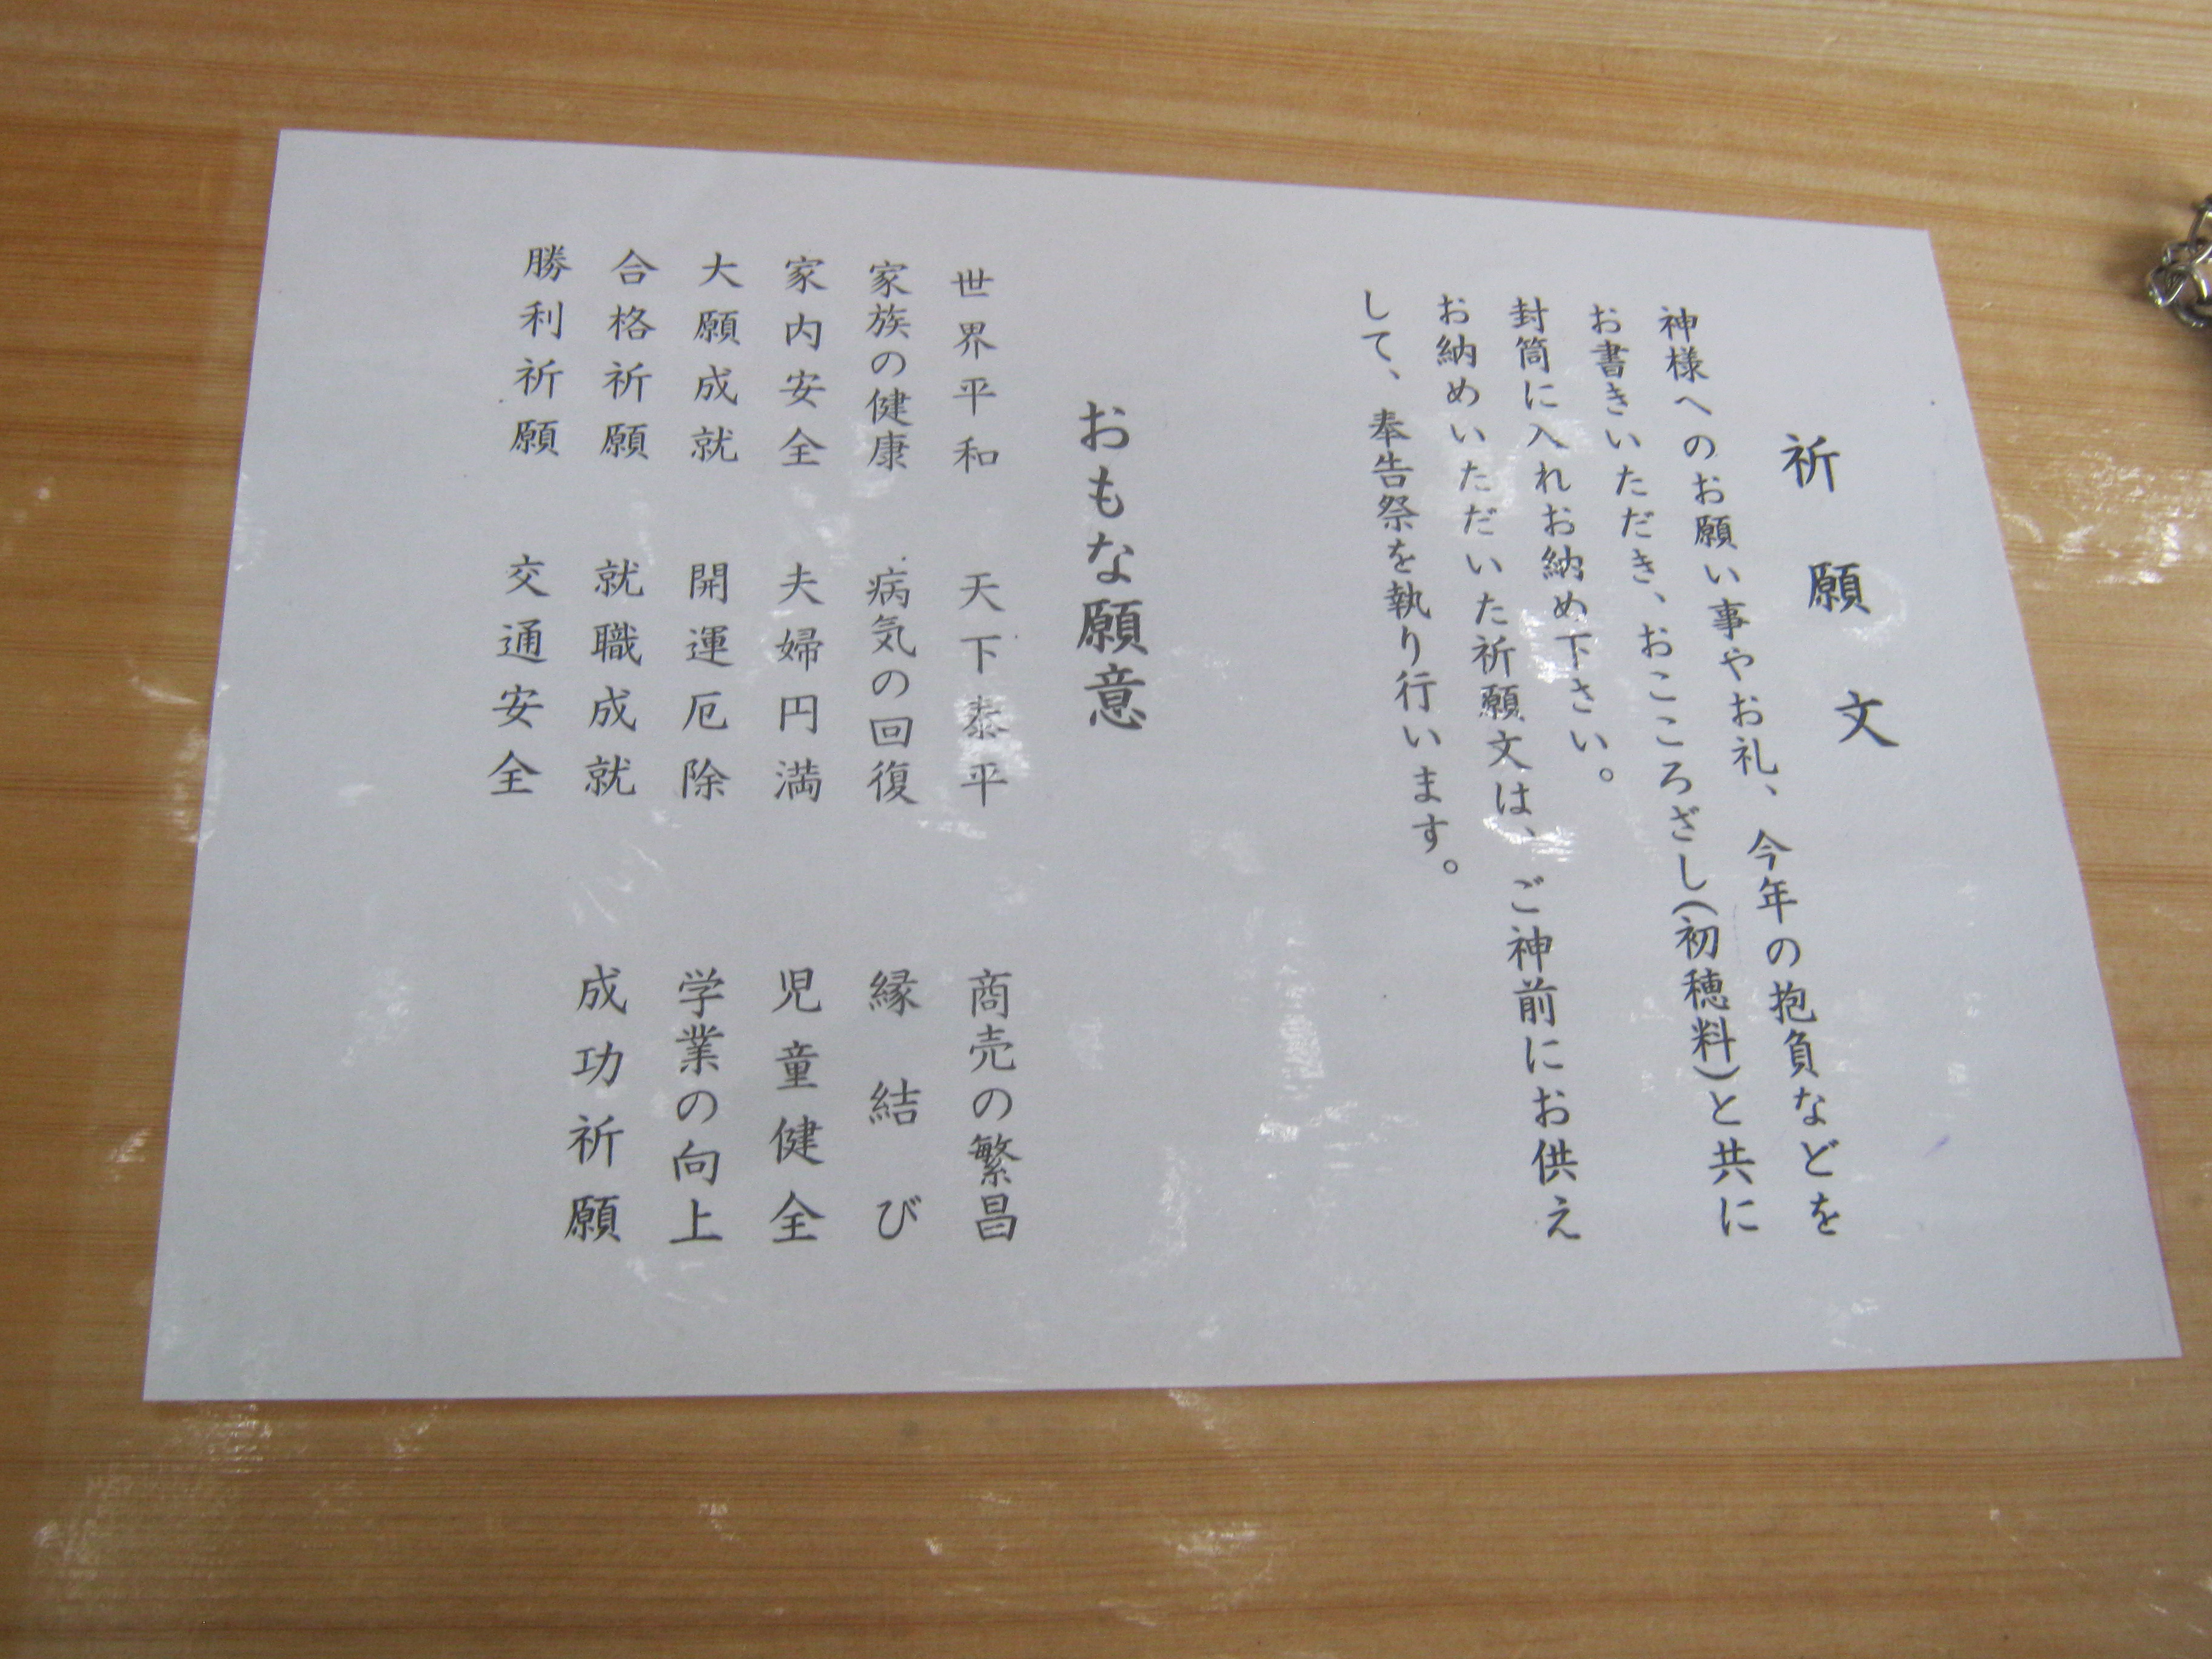 祈願文
神様へのお願い事やお礼、今年の抱負などを
お書きいただき、おこころざし(初穂料)と共に
封筒に入れお納め下さい。
お納めいただいた祈願文は、ご神前にお供え
して、奉告祭を執り行います。
おもな願意
世界平和 天下泰平 商売の繁昌
家族の健康 病気の回復 縁結び
家内安全 夫婦円満 児童健全
大願成就 開運厄除 学業の向上
合格祈願 就職成就 成功祈願
勝利祈願 交通安全